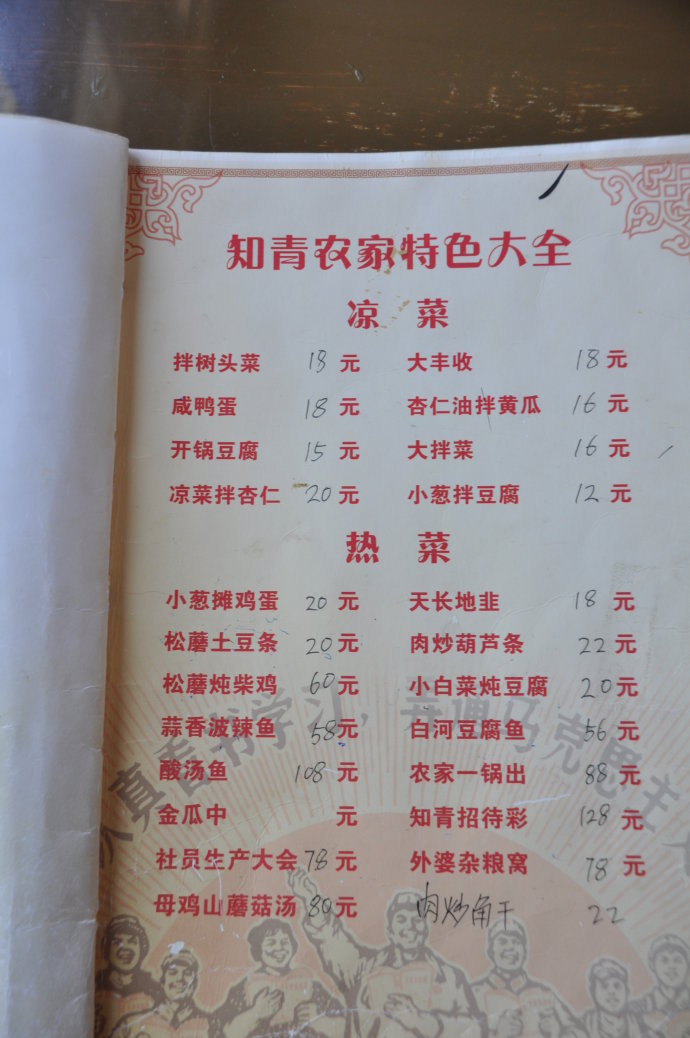 知青农家特色大全
凉 菜
拌树头菜 18 元 大丰收 18 元
咸鸭蛋 18 元 杏仁油拌黄瓜 16 元
开锅豆腐 15 元 大拌菜 16 元
凉菜拌杏仁 20 元 小葱拌豆腐 12 元
热 菜
小葱摊鸡蛋 20 元 天长地韭 18 元
松蘑土豆条 20 元 肉炒葫芦条 22 元
松蘑炖柴鸡 60 元 小白菜炖豆腐 20 元
蒜香波辣鱼 58 元 白河豆腐鱼 56 元
酸汤鱼 108 元 农家一锅出 88 元
金瓜中 元 知青招待彩 128 元
社员生产大会 78 元 外婆杂粮窝 78 元
母鸡山蘑菇汤 80 元 肉炒角干 22
真看书学习，弄通马克思主